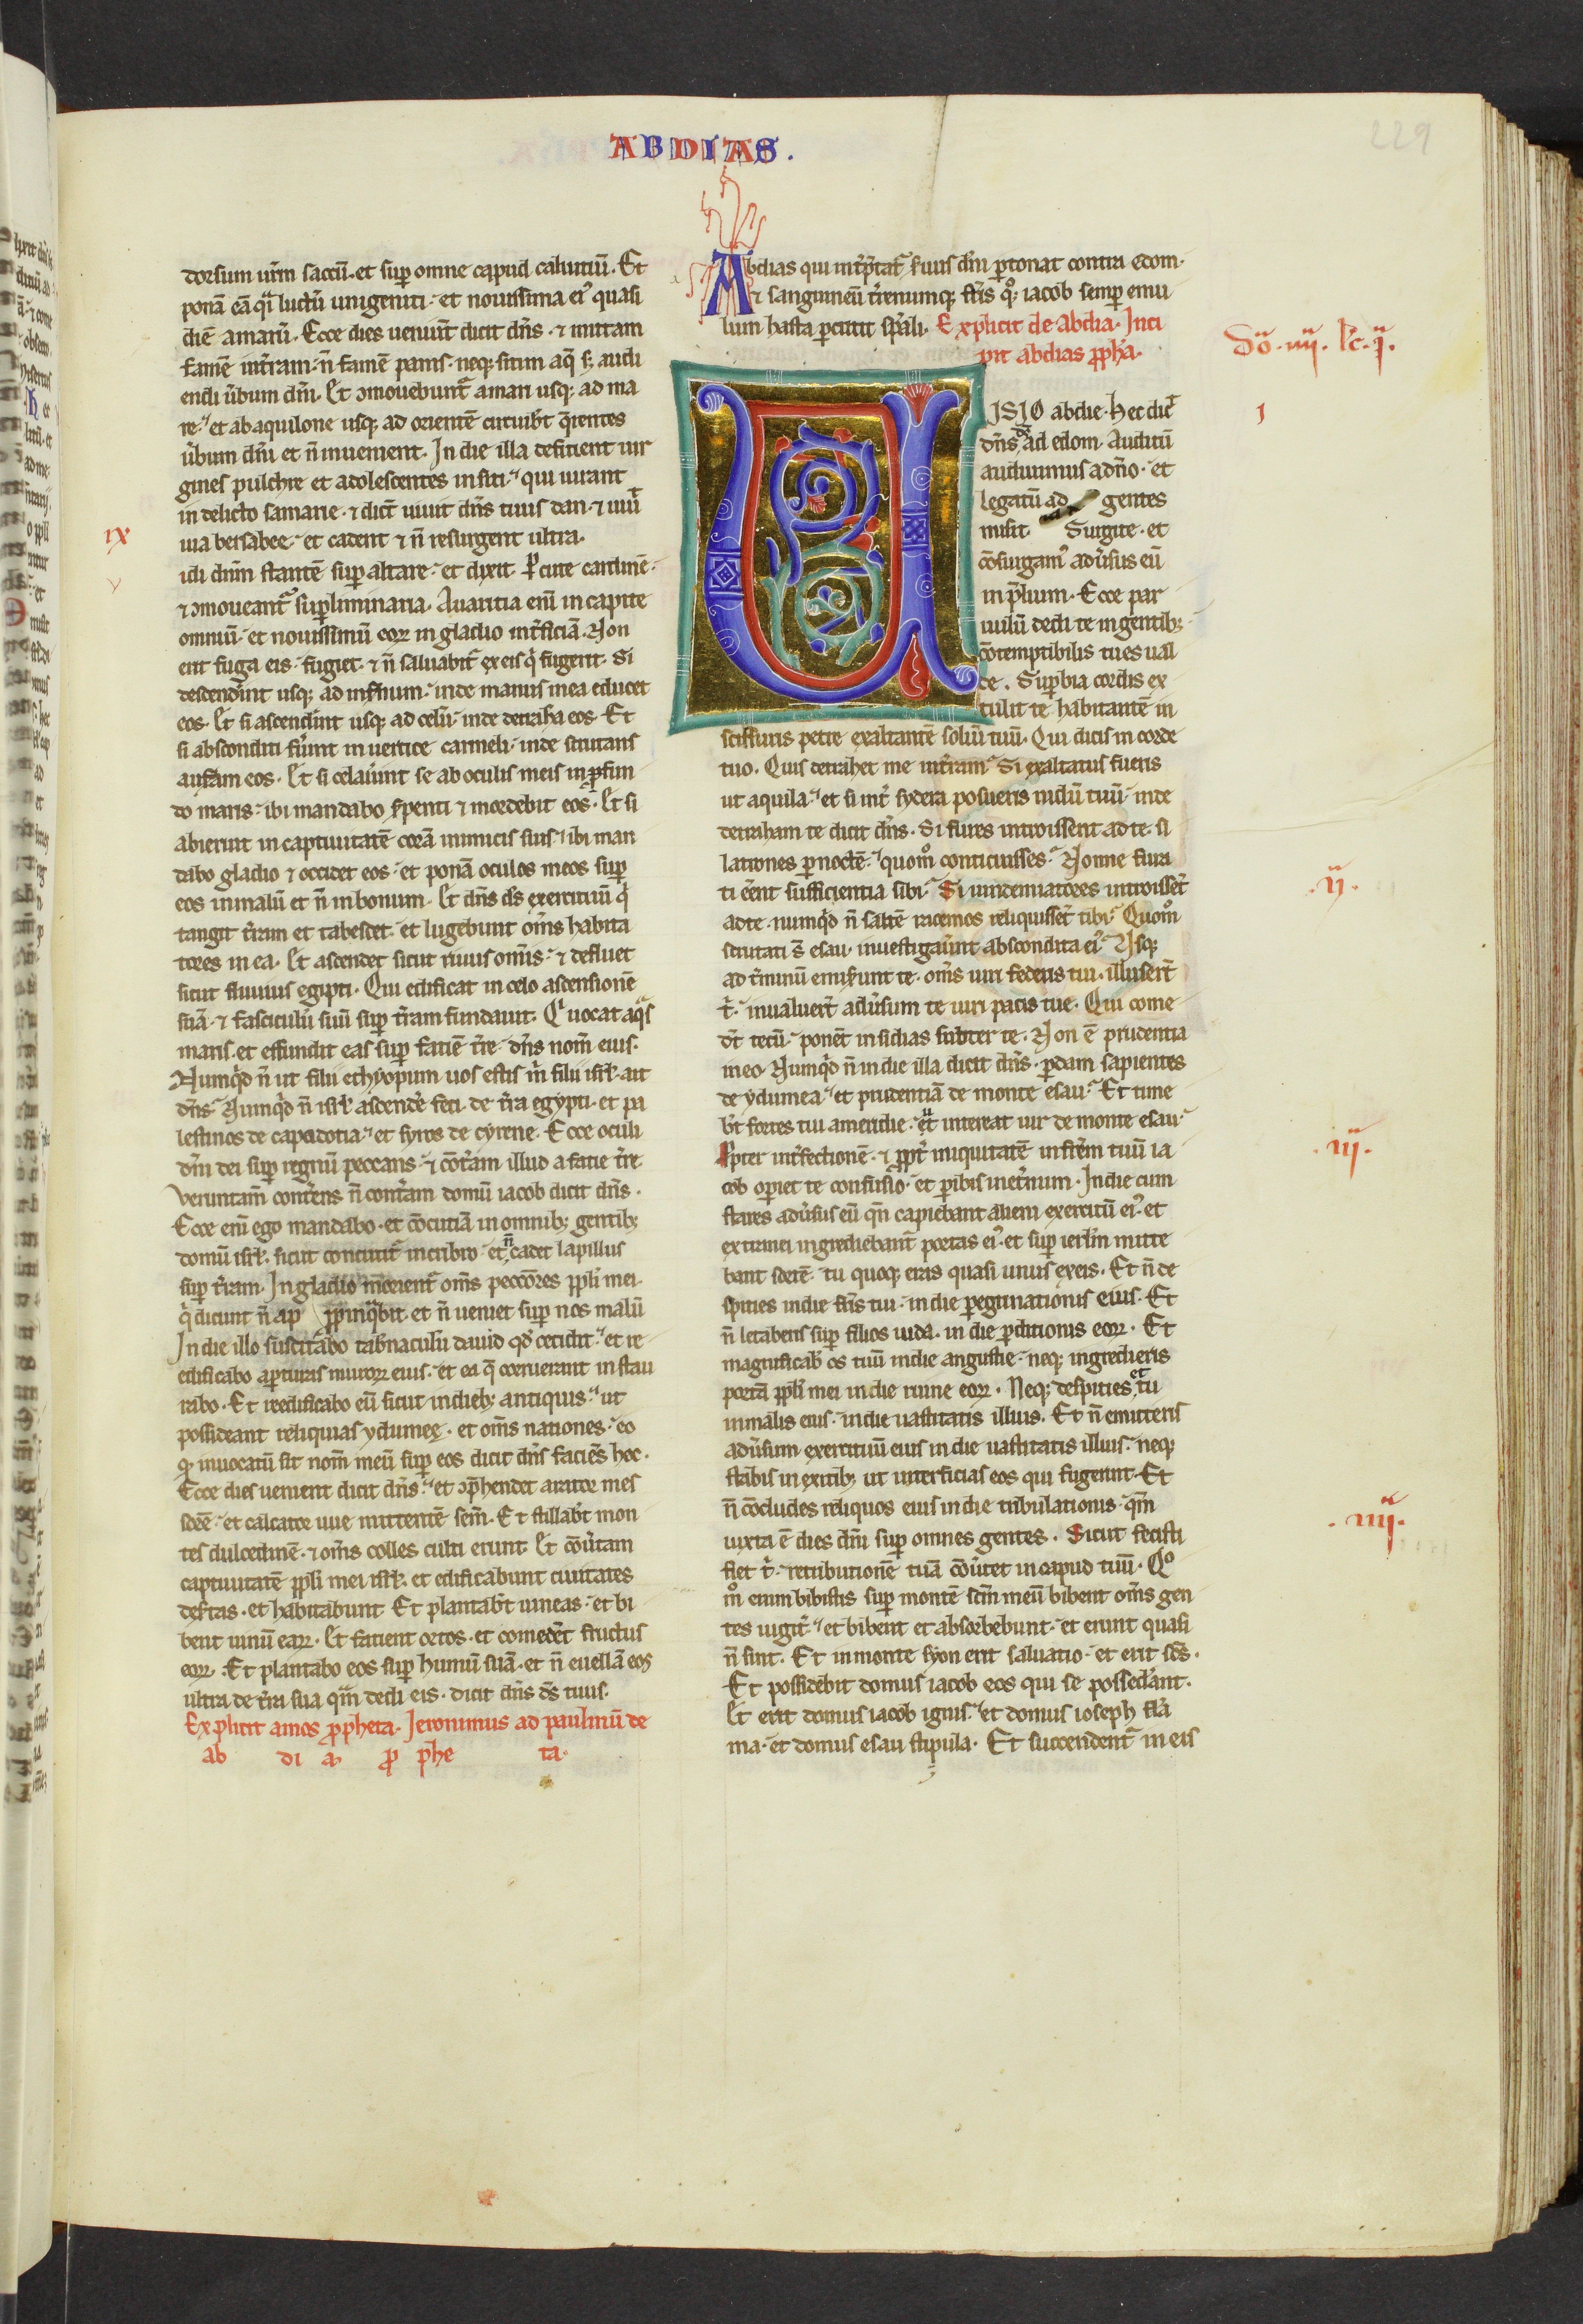 ABDIAS.
229
dorsum ur̄m saccū. et sup̲ omne capud caluitiū. Et
ponā eā q̊i luctū unigeniti. et nouissima ei᷒ quasi
diē amarū. Ecce dies ueniūt dicit dn̄s. ⁊ mittam
famē in t̄ram. n̄ famē panis. neq; sitim aq̄ s; audi
endi ūbum dn̄i. Et ꝯmouebunt᷑ a mari usq; ad ma
re. et ab aquilone usq; ad orientē circuibt̄ q̄rentes
ūbum dn̄i et n̄ inuenient. In die illa deficient uir
gines pulchre et adolescentes in siti. qui iurant
in delicto samarie. ⁊ dict̄ uiuit dn̄s tuus dan. ⁊ uiu̅
uia bersabee. et cadent ⁊ n̄ resurgent ultra.
ix
idi dnm̄ stantē sup̲ altare. et dixit. P̲cute cardinē.
v
⁊ ꝯmoueant᷑ sup̲liminaria. Auaritia enī in capite
omniū. et nouissimū eoꝝ in gladio int̄ficiā. Non
erit fuga eis. fugiet. ⁊ n̄ saluabit᷑ ex eis q̇ fugerit. Si
descendīnt usq; ad infnum. inde manus mea educet
eos. Et si ascendīnt usq; ad celū. inde detrahā eos. Et
si absconditi fūint in uertice carmeli. inde scrutans
aufam eos. Et si celaūint se ab oculis meis in ꝓfun
do maris. ibi mandabo sp̲enti ⁊ mordebit eos. Et si
abierint in captiuitatē corā inimicis suis. ibi man
dabo gladio ⁊ occidet eos. et ponā oculos meos sup̲
eos in malū et n̄ in bonum. Et dn̄s ds̄ exercituū q̇
tangit t̄ram et tabescet. et lugebunt om̄s habita
tores in ea. Et ascendet sicut riuus om̄is. ⁊ defluet
sicut fluuius egipti. Qui edificat in celo ascensionē
suā. ⁊ fasciculū suū sup̲ t̄ram fundauit. Q̇ uocat aq̊s
maris. et effundit eas sup̲ faciē t̄re. dn̄s nom̄ eius.
Numq̇d n̄ ut filii ethyopum uos estis m̄ filii isrl̄. ait
dn̄s. Numq̇d n̄ isrl̄ ascendē feci. de t̄ra egypti. et pa
lestinos de capadocia. et syros de cyrene. Ecce oculi
dn̄i dei sup̲ regnū peccans. ⁊ cōt̄am illud a facie t̄re.
Veruntam̄ cont̄ens n̄ cont̄am domū iacob dicit dn̄s.
Ecce enī ego mandabo. et cōcutiā in omnib; gentib;
domū isrl̄. sicut concutit᷑ in cribro. et n̄ cadet lapillus
sup̲ t̄ram. In gladio morient᷑ om̄s peccōres ppl̄i mei.
q̇ dicunt n̄ ap ꝓpinq̊bit. et n̄ ueniet sup̲ nos malū
In die illo suscitabo tab̄naculū dauid qd̄ cecidit. et re
edificabo ap̲turas muroꝝ eius. et ea q̄ corruerant instau
rabo. Et reedificabo eū sicut in dieb; antiquis. ut
possideant reliquias ydumeę. et om̄s nationes. eo
ꝙ inuocatū sit nom̄ meū sup̲ eos dicit dn̄s faciēs hoc.
Ecce dies uenient dicit dn̄s. et ꝯp̄hendet arator mes
sorē. et calcator uue mittentē sem̄. Et stillabt̄ mon
tes dulcedinē. ⁊ om̄s colles culti erunt. Et cōūtam
captiuitatē ppl̄i mei isrl̄. et edificabunt ciuitates
desertas. et habitabunt Et plantabt̄ uineas. et bi
bent uinū eaꝝ. Et facient ortos. et comedēt fructus
eoꝝ. Et plantabo eos sup̲ humū suā. et n̄ euellā eos
ultra de t̄ra sua qm̄ dedi eis. dicit dn̄s ds̄ tuus.
Explicit amos ꝓpheta. Jeronimus ad paulinū de
ab di a. ꝓ phe ta.
Abdias qui int̄p̄tat᷑ s̄uus dn̄i p̲tonat contra edom.
⁊ sanguineū t̄renumq; frīs qͦ; iacob semp̲ emu
lum hasta p̲cutit sp̄ali. Explicit de Abdia. Inci
pit abdias ꝓph̄a.
Dō. iiij. lc̄. j.
UISIO abdie. hec dic̄
i
dn̄s ds̄ ad edom. Auditū
audiuimus a dn̄o. et
legatū ad gentes
misit. Surgite. et
cōsurgam᷒ adūsus eū
in p̄lium. Ecce par
uulū dedi te in gentib;
cōtemptibilis tu es ual
de. Sup̲bia cordis ex
tulit te habitantē in
scissuris petre exaltantē soliū tuū. Qui dicis in corde
tuo. Quis detrahet me in t̄ram. Si exaltatus fueris
ut aquila. et si int̄ sydera posueris nidū tuū. inde
detraham te dicit dn̄s. Si fures introissent ad te. si
latrones p̲ noctē. quomͦ conticuisses. Nonne fura
ij.
ti eēnt sufficientia sibi. Si uindemiatores introissēt
ad te. numq̇d n̄ saltē racemos reliquissēt tibi. Quomͦ
scrutati s̄ esau. inuestigaūnt abscondita ei᷒. Usq;
ad t̄minū emiserunt te. om̄s uiri federis tui. illusert̄
t̄. inualuert̄ adūsum te uiri pacis tue. Qui come
dt̄ tecū. ponēt insidias subter te. Non ē prudentia
in eo. Numq̇d n̄ in die illa dicit dn̄s. p̲dam sapientes
de ydumea. et prudentiā de monte esau. Et time
bt̄ fortes tui a meridie. ut intereat uir de monte esau.
iij.
Ꝓpter int̄fectionē. ⁊ ꝓpt̄ iniquitatē in fr̄em tuū ia
cob op̲iet te confusio. et p̲ibis in et̄num. In die cum
stares adūsus eū qn̄ capiebant alieni exercitū ei᷒. et
extranei ingrediebant᷑ portas ei᷒. et sup̲ ierlm̄ mitte
bant sortē. tu quoq; eras quasi unus ex eis. Et n̄ de
spicies in die frīs tui. in die p̲egrinationis eius. Et
n̄ letaberis sup̲ filios iuda. in die p̲ditionis eoꝝ. Et
magnificabis os tuū in die angustie. neq; ingredieris
portā ppl̄i mei in die ruine eoꝝ. Neq; despicies et tu
in malis eius. in die uastitatis illius. Et n̄ emitteris
adūsum exercituū eius in die uastitatis illius. neq;
stabis in exitib; ut interficias eos qui fugerint. Et
iiij.
n̄ cōcludes reliquos eius in die tribulationis. qm̄
iuxta ē dies dn̄i sup̲ omnes gentes. Sicut fecisti
fiet t̄. retributionē tuā cōūtet in capud tuū. Qͦ
mͦ enim bibistis sup̲ montē scm̄ meū bibent om̄s gen
tes iugit̄. et bibent et absorbebunt. et erunt quasi
n̄ sint. Et in monte syon erit saluatio. et erit scs̄.
Et possidebit domus iacob eos qui se possed̄ant.
Et erit domus iacob ignis. et domus ioseph flā
ma. et domus esau stipula. Et succendent᷑ in eis